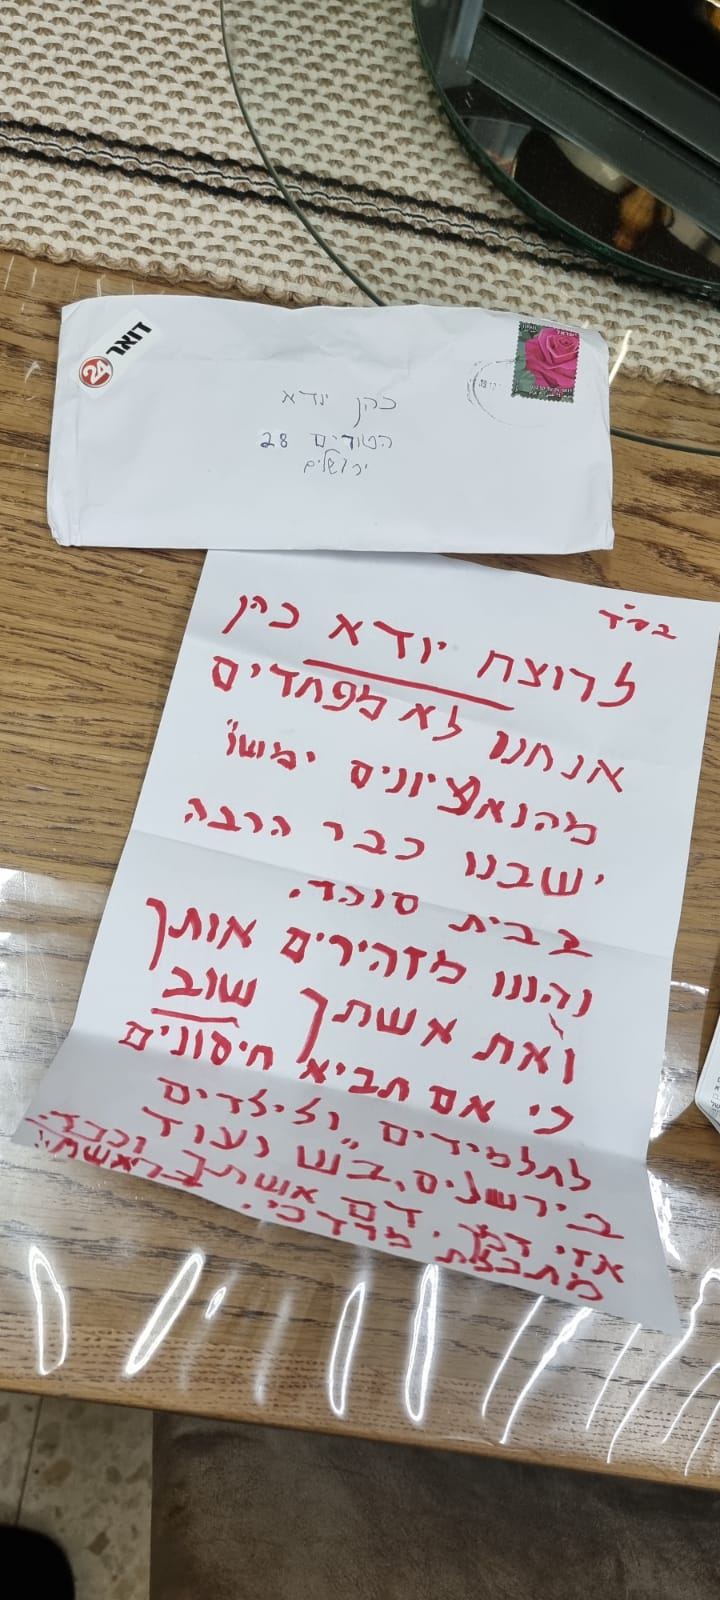 דואר 24
ישראל
כהן יודא
הטורים 28
ירושלים
בס"ד
לרוצח יודא כהן
אנחנו לא מפחדים
מהנאציונים ימשו"
ישבנו כבר הרבה
בבית סוהר.
והננו מזהירים אותך
ואת אשתך שוב
כי אם תביא חיסונים
לתלמידים ולילדים
בירושלים, ב"ש ועוד
אזי דמך דם אשתך
מתכצת מרדכי. בראשת"